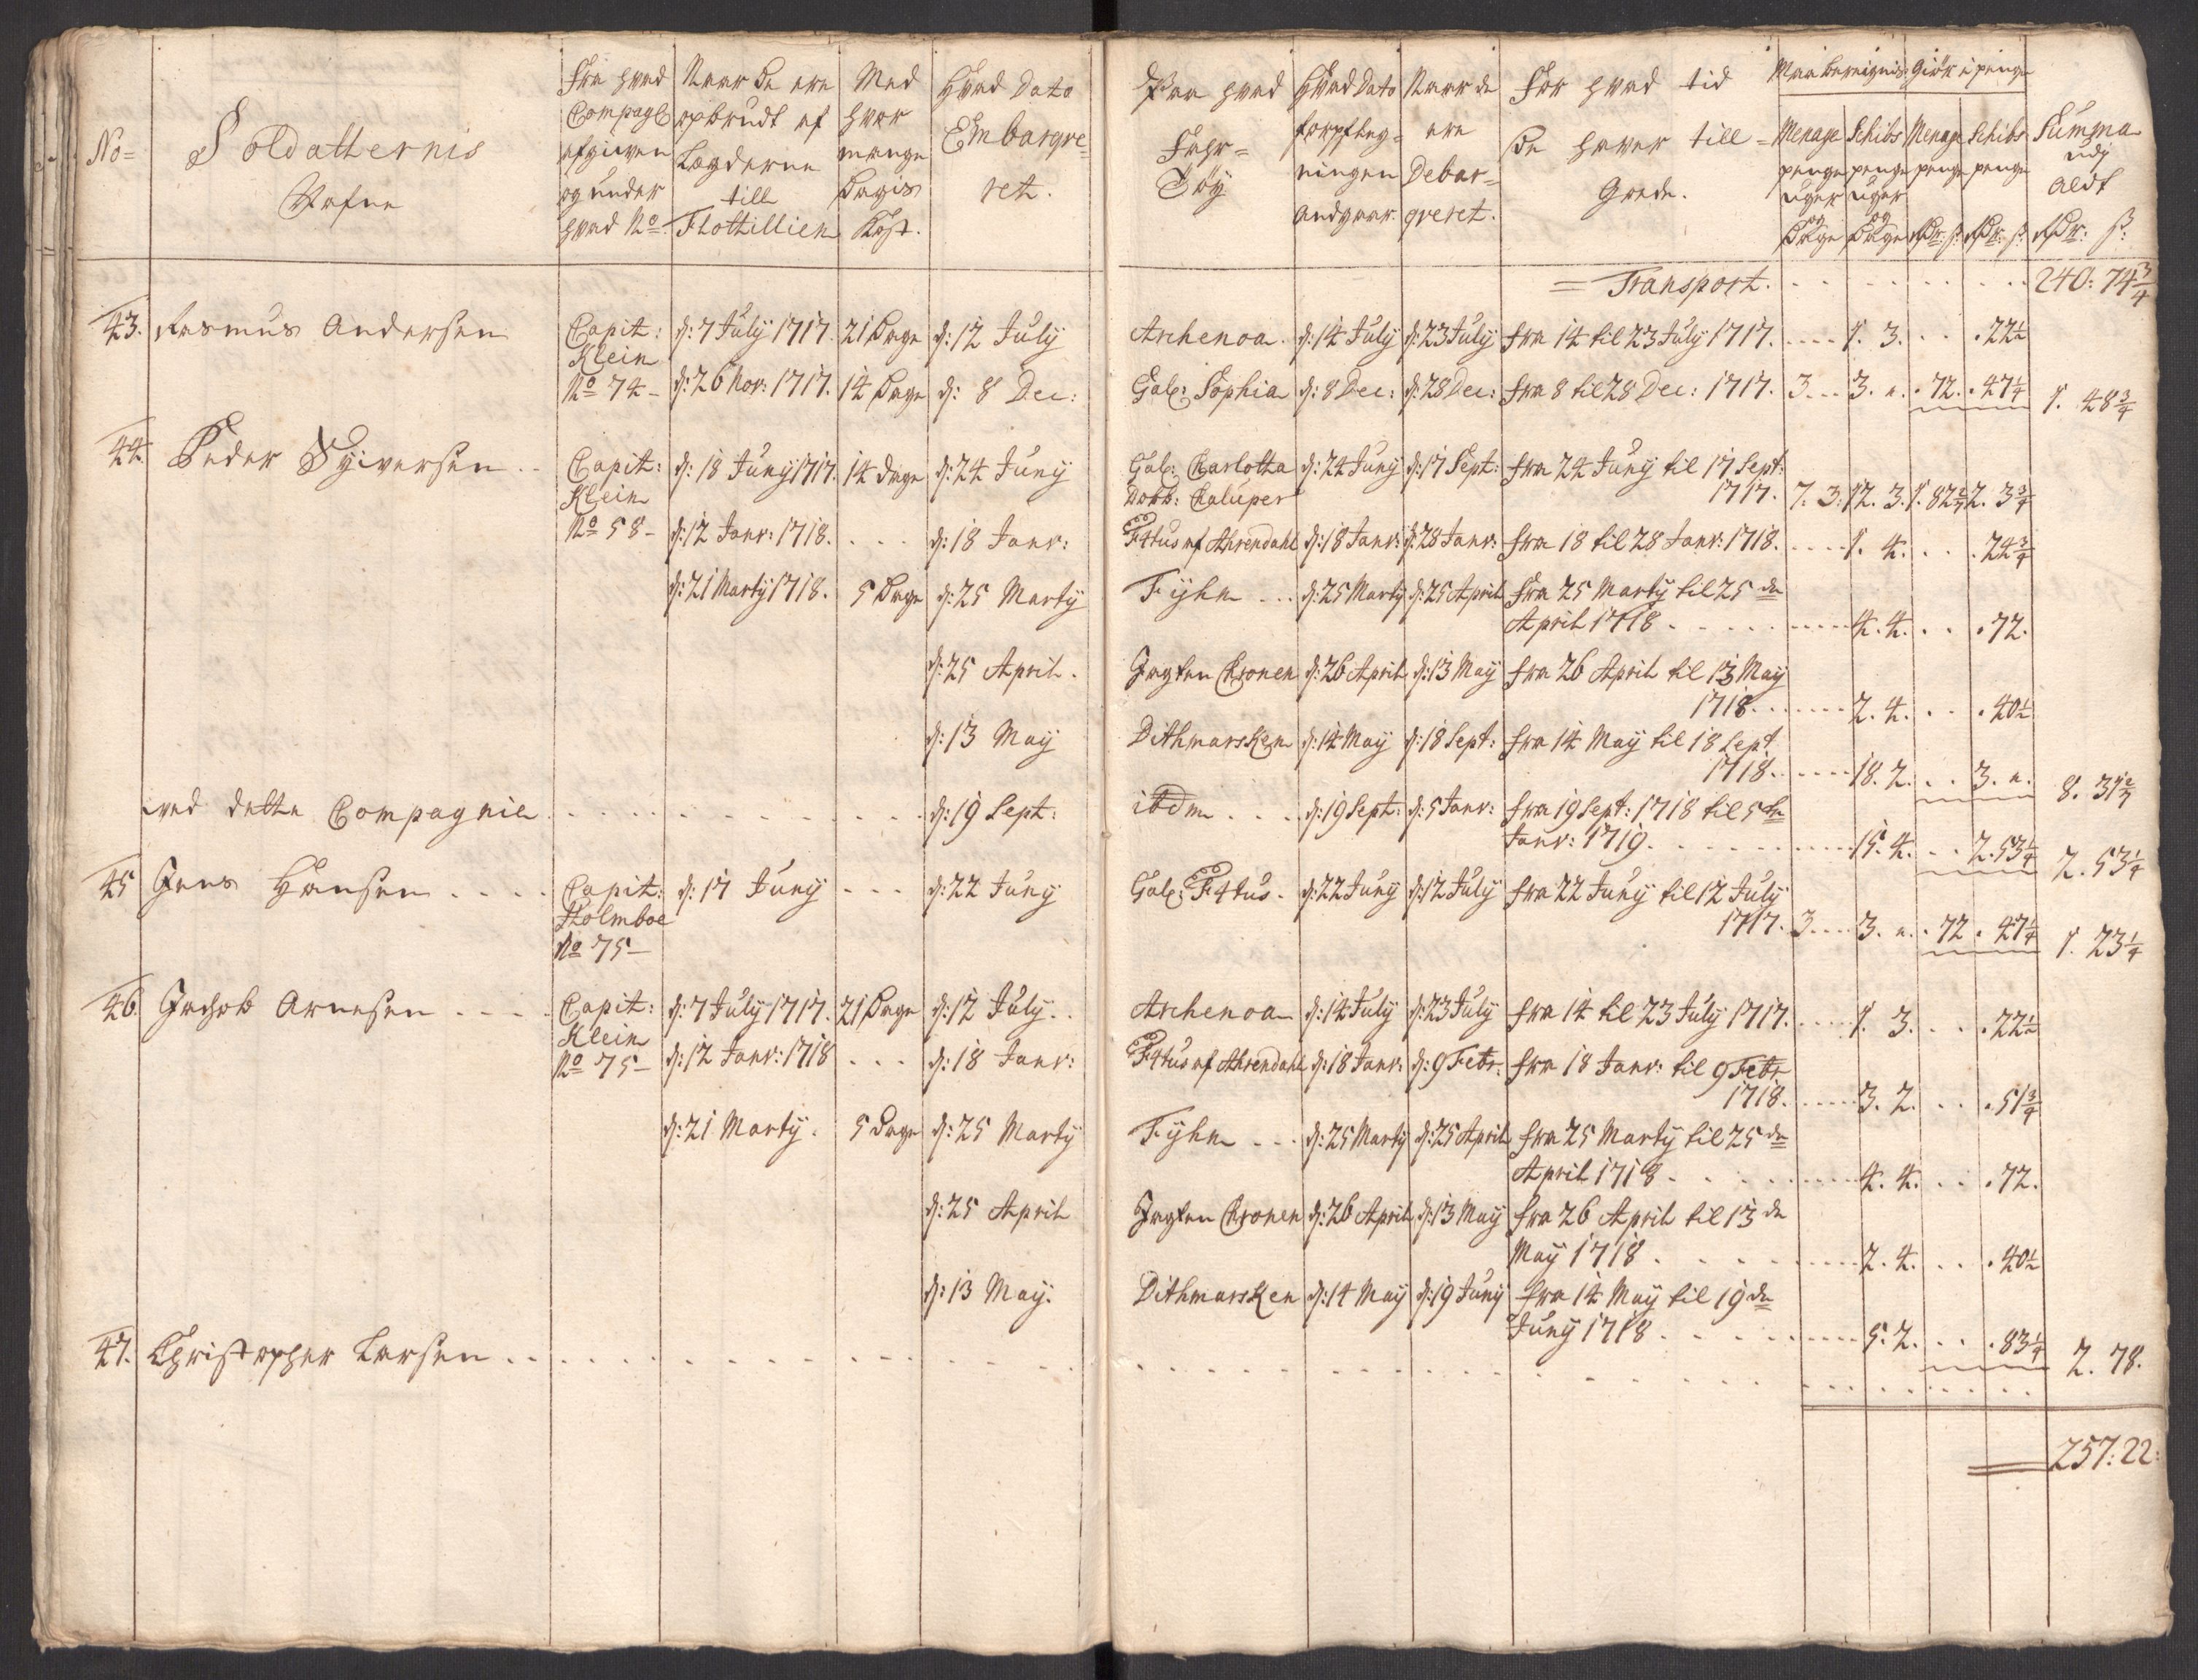 No=
Soldatternis
Nafne
Fra hvad
Compagl
afgiven
og under
hvad No.
Naar De ere
opbrudt af
Lægderne
till
Flottillien
Med
hvor
mange
Dagis
Kost.
Hvad Dato
Embarqve=
ret.
Paa hvad
Fahr=
Töy
Hvad Dato
forpfleg=
ningen
andgaar
Naar de
ere
Debar=
qveret.
For hvad tid
De haver till=
Gode.
Maa bereignis
Giör i penge
Menage
penge
uger
og
Dage
Schibs
penge
uger
og
Dage
Menage
penge
Rdr: s:
Schibs
penge
Rdr: s:
Summa
udj
aldt
Rdr: s:
= Transport. 240: 74 3/4
43. Rasmus Andersen Capit: d: 7 July 1717. 21 Dage d: 12 July Archenoa. d: 14 July d: 23 July fra 14 til 23 July 1717. 1. 3. 22 1/2
Klein
No 74 - d: 26 Nov: 1717. 14 Dage d: 8 Dec: Gal: Sophia d: 8 Dec: d: 28 Dec: fra 8 til 28 Dec: 1717. 3. 3. 72. 47 1/4 1. 48 3/4
44. Peder Syiversen Capit: d: 18 Juny 1717. 14 dage d: 24 Juny Gal: Carlotta d: 24 Juny d: 17 Sept: fra 24 Juny til 17 Sept:
Klein Dobb: Caluper 1717. 7. 3. 12. 3. 1. 82 2/7 2. 3 3/4
No 58 - d: 12 Janv: 1718. d: 18 Janv: F4tus af Ahrendahl d: 18 Janv: d: 28 Janv: fra 18 til 28 Janv: 1718. 1. 4. 24 3/4
d: 21 Marty 1718. 5 Dage d: 25 Marty Fyhn d: 25 Marty d: 25 April fra 25 Marty til 25 de
April 1718 4. 4. 72.
d: 25 April. Jagten Cronen d: 26 April d: 13 May fra 26 April til 13 May
1718. 2. 4. 40 1/2
d: 13 May Dithmarsken d: 14 May d: 18 Sept: fra 14 May til 18 Sept
1718. 18. 2. 3. 8. 31 2/7
ved dette Compagnie d: 19 Sept: ibdm d: 19 Sept: d: 5 Janv: fra 19 Sept: 1718 til 5 te
Janv: 1719. 15. 4. 2. 53 1/4 2. 53 1/4
45 Jens Hansen Capit: d: 17 Juny d: 22 Juny Gal: F4tus. d: 22 Juny d: 12 July fra 22 Juny til 12 July
Holmboe 1717. 3. 3. 72. 47 1/4 1. 23 1/4
No 75 -
46 Jachob Arnesen Capit: d: 7 July 1717. 21 Dage d: 12 July Archenoa d: 14 July d: 23 July fra 14 til 23 July 1717. 1. 3. 22 1/2
Klein
No 75 - d: 12 Janv: 1718 d: 18 Janv: F4tus af Ahrendahl d: 18 Janv: d: 9 Febr: fra 18 Janv: til 9 Febr
1718. 3. 2. 51 3/4
d: 21 Marty. 5 Dage d: 25 Marty Fyhn d: 25 Marty d: 25 April fra 25 Marty til 25 de
April 1718 4. 4. 72.
d: 25 April Jagten Cronen d: 26 April d: 13 May fra 26 April til 13 de
May 1718 2. 4. 40 1/2
d: 13 May. Dithmarsken d: 14 May d: 19 Juny fra 14 May til 19 de
Juny 1718 5. 2. 83 1/4 2. 78.
47. Christopher Larsen
257: 22: